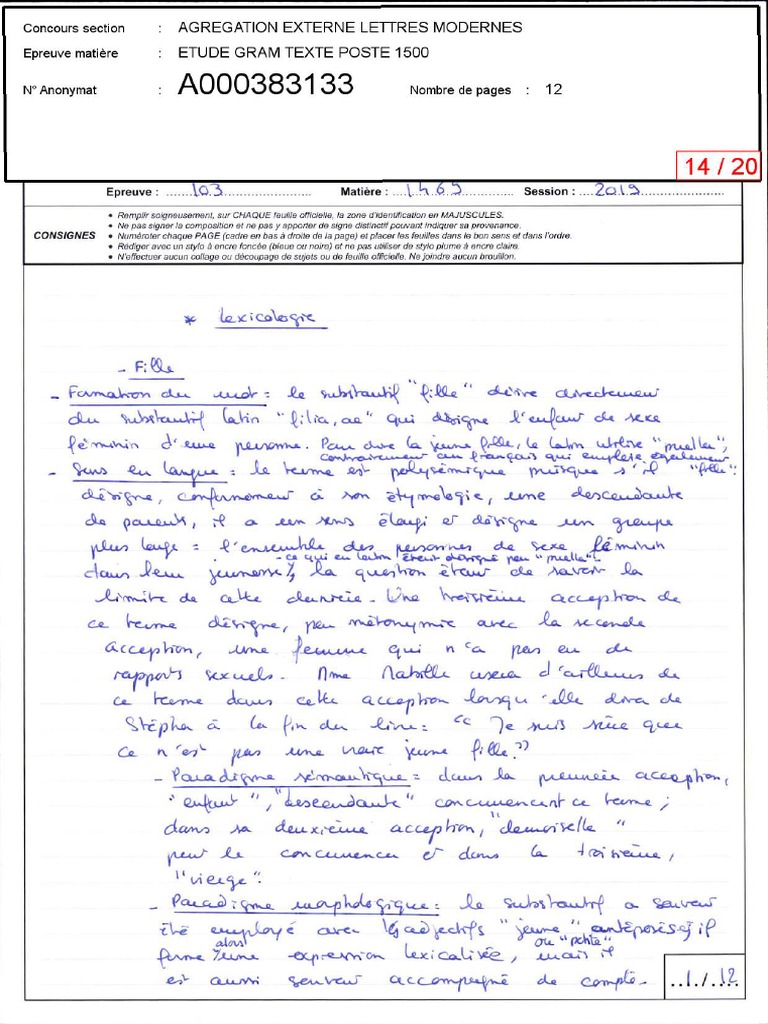 Concours section : AGREGATION EXTERNE LETTRES MODERNES
Epreuve matière : ETUDE GRAM TEXTE POSTE 1500
N° Anonymat : A000383133 Nombre de pages : 12
14 / 20
Epreuve : 103 Matière : 1469 Session : 2019
CONSIGNES
• Remplir soigneusement, sur CHAQUE feuille officielle, la zone d'identification en MAJUSCULES.
• Ne pas signer la composition et ne pas y apporter de signe distinctif pouvant indiquer sa provenance.
• Numéroter chaque PAGE (cadre en bas à droite de la page) et placer les feuilles dans le bon sens et dans l'ordre.
• Rédiger avec un stylo à encre foncée (bleue ou noire) et ne pas utiliser de stylo plume à encre claire.
• N'effectuer aucun collage ou découpage de sujets ou de feuille officielle. Ne joindre aucun brouillon.
* Lexicologie
- Fille
- Formation du mot : le substantif "fille" dérive directement
du substantif latin "filia, ae" qui désigne l'enfant de sexe
féminin d'une personne. Pour dire la jeune fille, le latin utilise "puella",
contrairement au français qui emploie également "fille".
- Sens en langue : le terme est polysémique puisque s'il
désigne, conformément à son étymologie, une descendante
de parents, il a un sens élargi et désigne un groupe
plus large : l'ensemble des personnes de sexe féminin
- ce qui en latin était désigné par "puella" -
dans leur jeunesse, la question étant de savoir la
limite de cette dernière. Une troisième acception de
ce terme désigne, par métonymie avec la seconde
acception, une femme qui n'a pas eu de
rapports sexuels. Mme Mabille usera d'ailleurs de
ce terme dans cette acception lorsqu'elle dira de
Stépha à la fin du livre : "Je suis sûre que
ce n'est pas une vraie jeune fille."
- Paradigme sémantique : dans la première acception,
"enfant", "descendante" concurrencent ce terme ;
dans sa deuxième acception, "demoiselle"
peut le concurrencer et dans la troisième,
"vierge".
- Paradigme morphologique : le substantif a souvent
été employé avec les adjectifs "jeune" ou "petite" antéposés, il
forme alors une expression lexicalisée, mais il
est aussi souvent accompagné de complé-
1 / 12